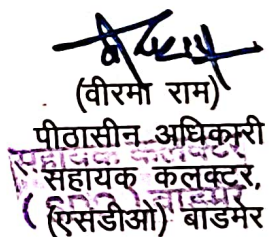 (वीरमा राम)
पीठासीन अधिकारी
सहायक कलक्टर,
(एसडीओ) बाडमेर